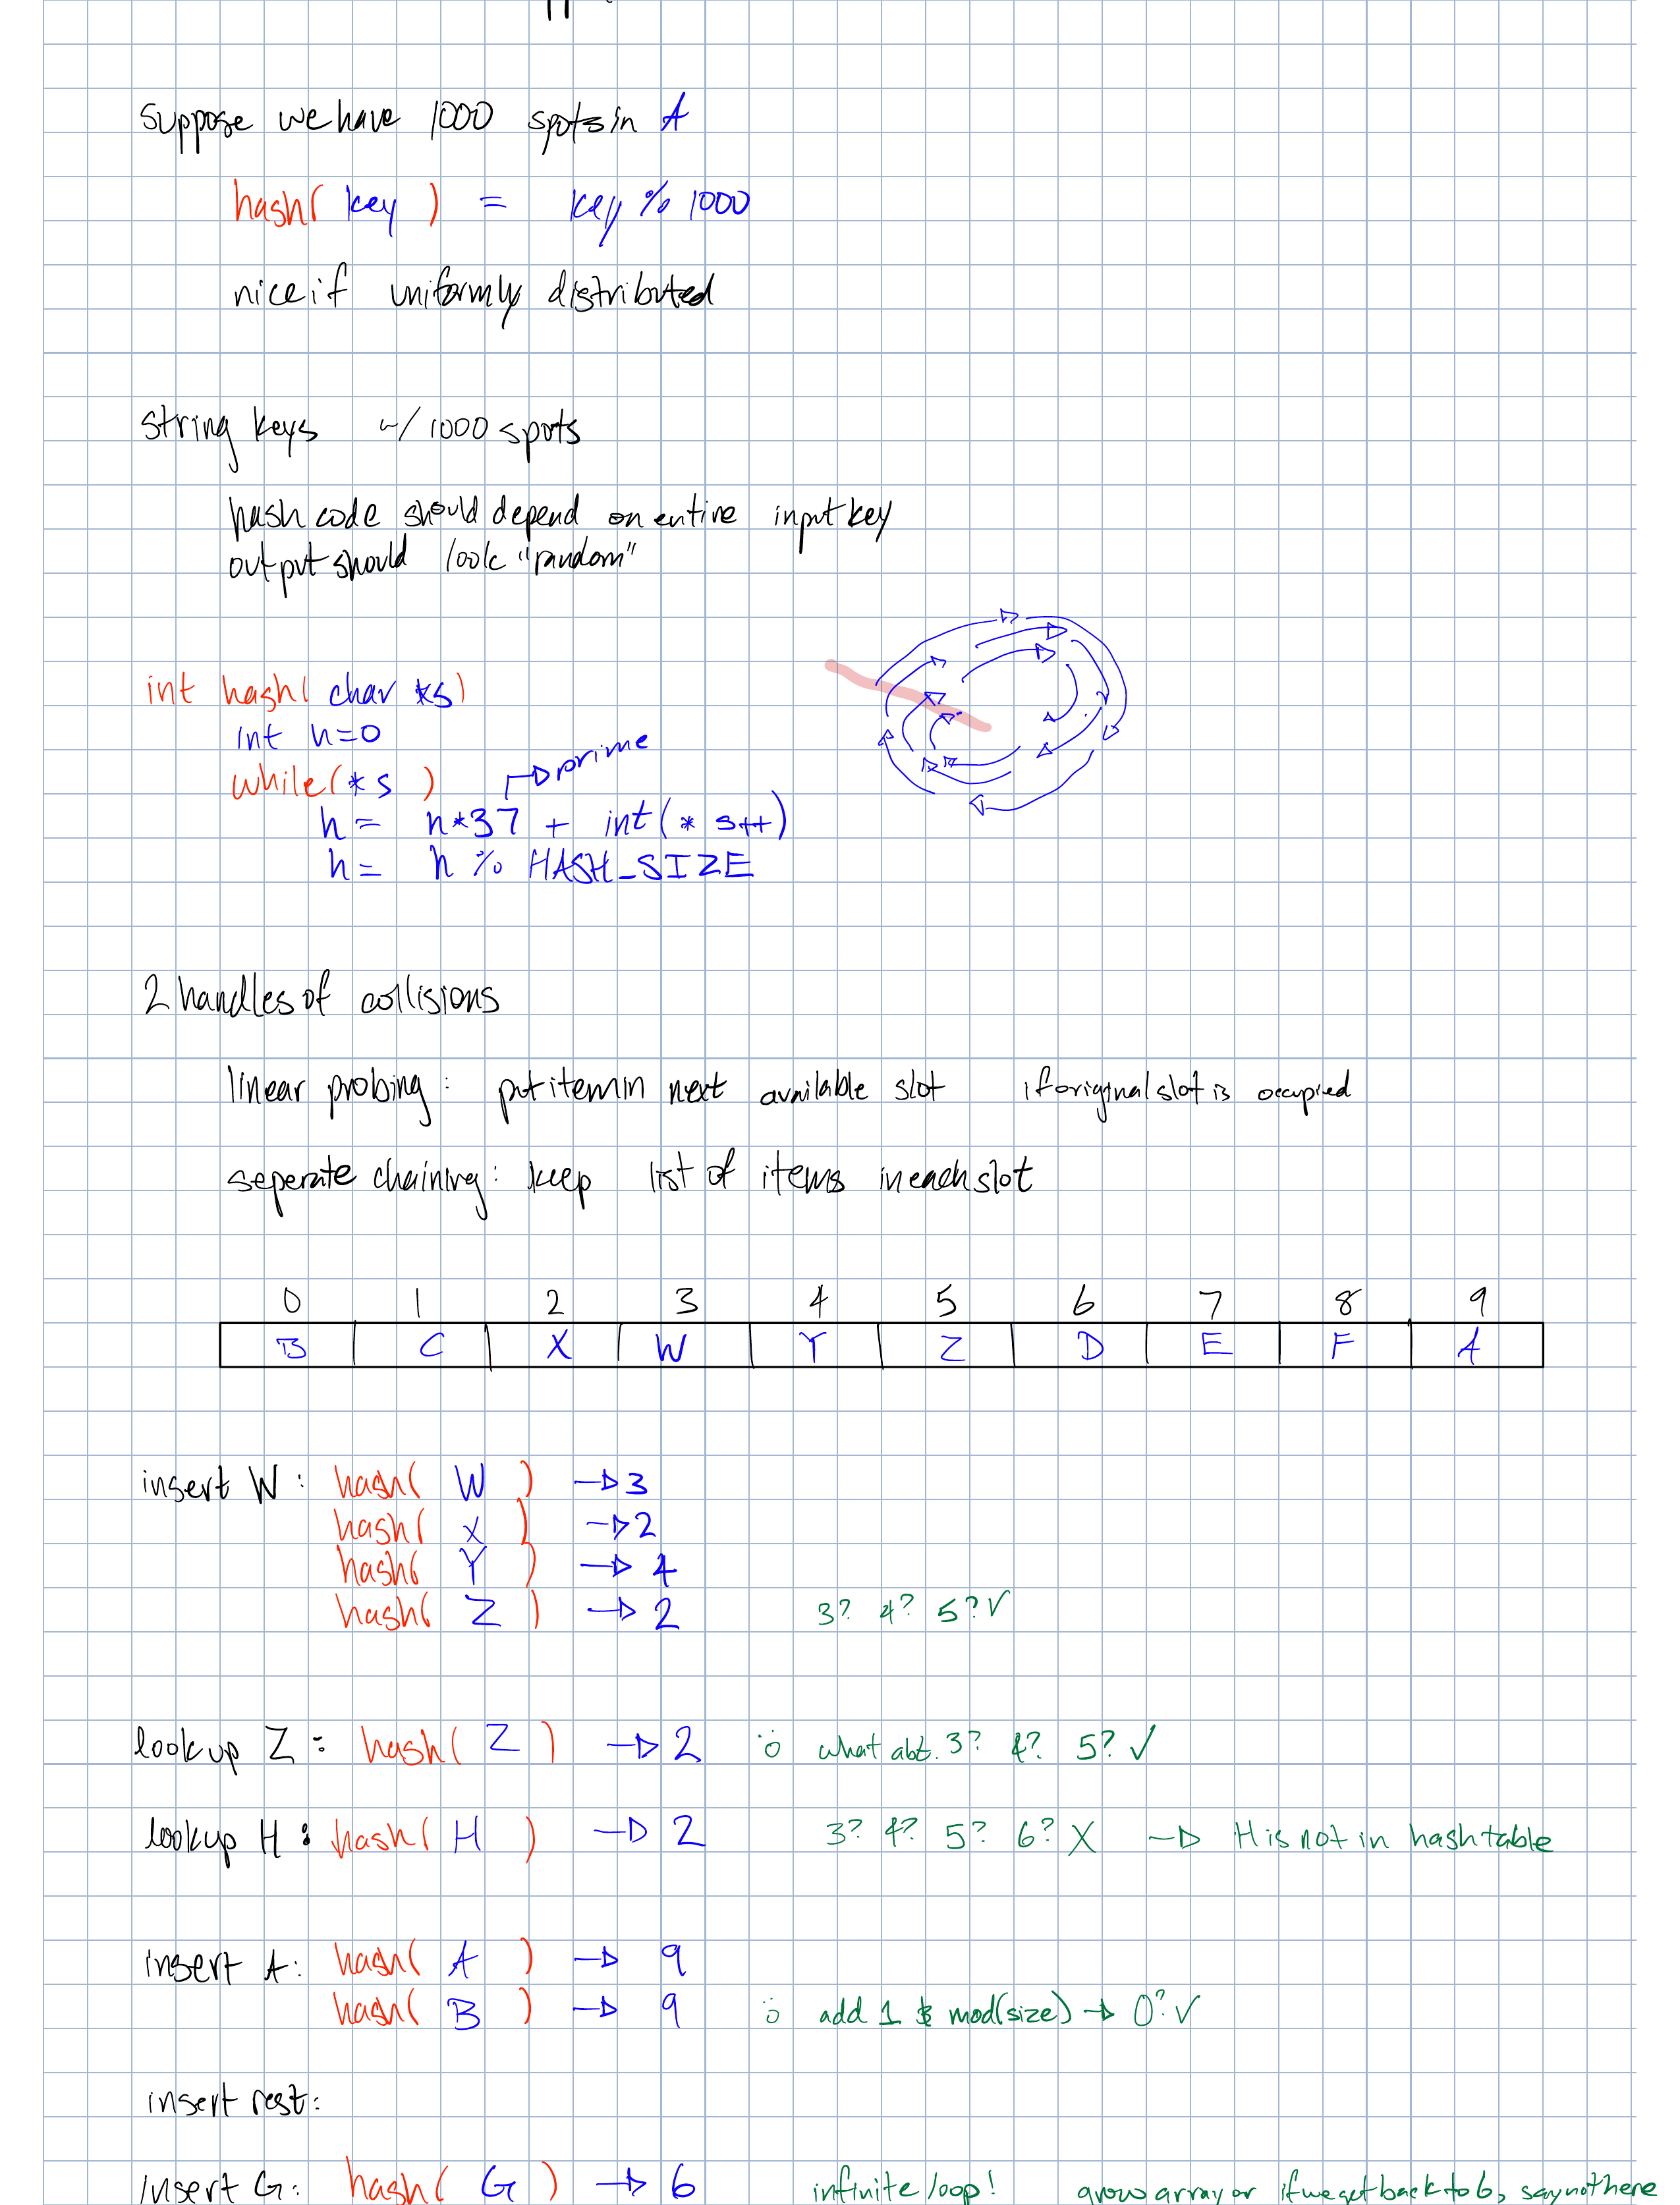 suppose we have 1000 spots in A
hash( key ) = key % 1000
nice if uniformly distributed
string keys w/ 1000 spots
hash code should depend on entire input key
output should look "random"
int hash( char *s)
int h=0
prime
while(*s )
h = h*37 + int(* s++)
h = h % HASH_SIZE
2 handles of collisions
linear probing: put item in next available slot if original slot is occupied
seperate chaining: keep list of items in each slot
0 1 2 3 4 5 6 7 8 9
B C X W Y Z D E F A
insert W: hash( W ) → 3
hash( X ) → 2
hash( Y ) → 4
hash( Z ) → 2 3? 4? 5? ✓
lookup Z: hash( Z ) → 2 what abt. 3? 4? 5? ✓
lookup H: hash( H ) → 2 3? 4? 5? 6? X → H is not in hash table
insert A: hash( A ) → 9
hash( B ) → 9 add 1 & mod(size) → 0? ✓
insert rest:
insert G: hash( G ) → 6 infinite loop! grow array or if we get back to 6, say not here